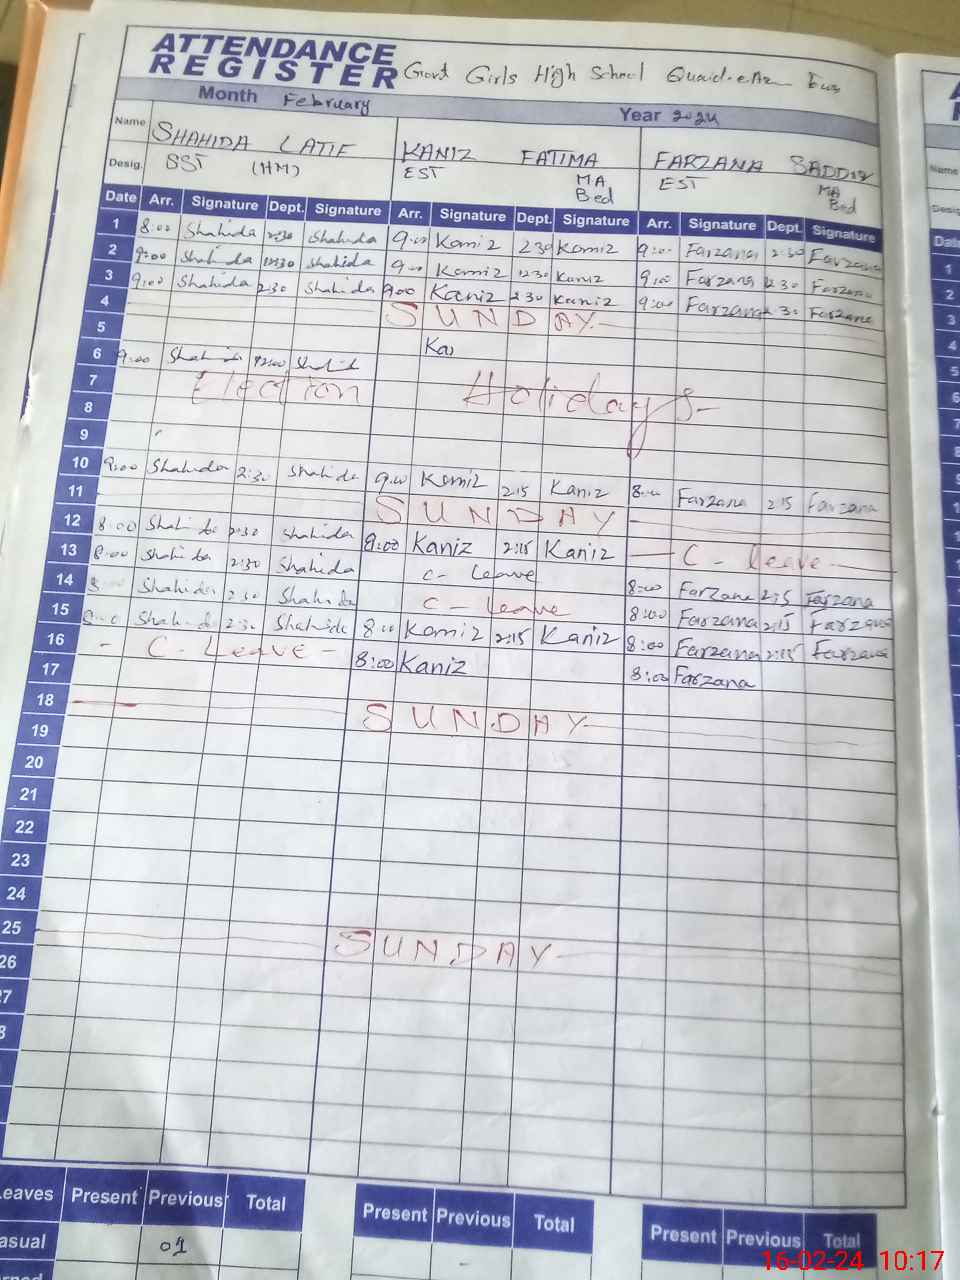 ATTENDANCE
REGISTER Govt Girls High School Quaid-e-Az
Month February Year 2024
Name SHAHIDA LATIF KANIZ FATIMA FARZANA SADDIQ
Desig. SST (HM) EST MA Bed EST MA Bed
Date Arr. Signature Dept. Signature Arr. Signature Dept. Signature Arr. Signature Dept. Signature
1 8:00 Shahida 2:30 Shahida 9:00 Kaniz 2:30 Kaniz 9:00 Farzana 2:30 Farzana
2 9:00 Shahida 12:30 Shahida 9:00 Kaniz 12:30 Kaniz 9:00 Farzana 12:30 Farzana
3 9:00 Shahida 2:30 Shahida 9:00 Kaniz 2:30 Kaniz 9:00 Farzana 2:30 Farzana
4 SUNDAY
5 Kas
6 9:00 Shahida 12:00 Shahid
7 Election Holidays
8
9
10 9:00 Shahida 2:30 Shahida 9:00 Kaniz 2:15 Kaniz 8:00 Farzana 2:15 Farzana
11 SUNDAY
12 8:00 Shahida 2:30 Shahida 8:00 Kaniz 2:15 Kaniz C - leave
13 8:00 Shahida 2:30 Shahida C - leave 8:00 Farzana 2:15 Farzana
14 8:00 Shahida 2:30 Shahida C - leave 8:00 Farzana 2:15 Farzana
15 8:00 Shahida 2:30 Shahida 8:00 Kaniz 2:15 Kaniz 8:00 Farzana 2:15 Farzana
16 - C - Leave - 8:00 Kaniz 8:00 Farzana
17
18 SUNDAY
19
20
21
22
23
24
25 SUNDAY
26
27
8
Leaves Present Previous Total Present Previous Total Present Previous Total
asual 01
16-02-24 10:17
Name
Date
1
2
3
4
5
6